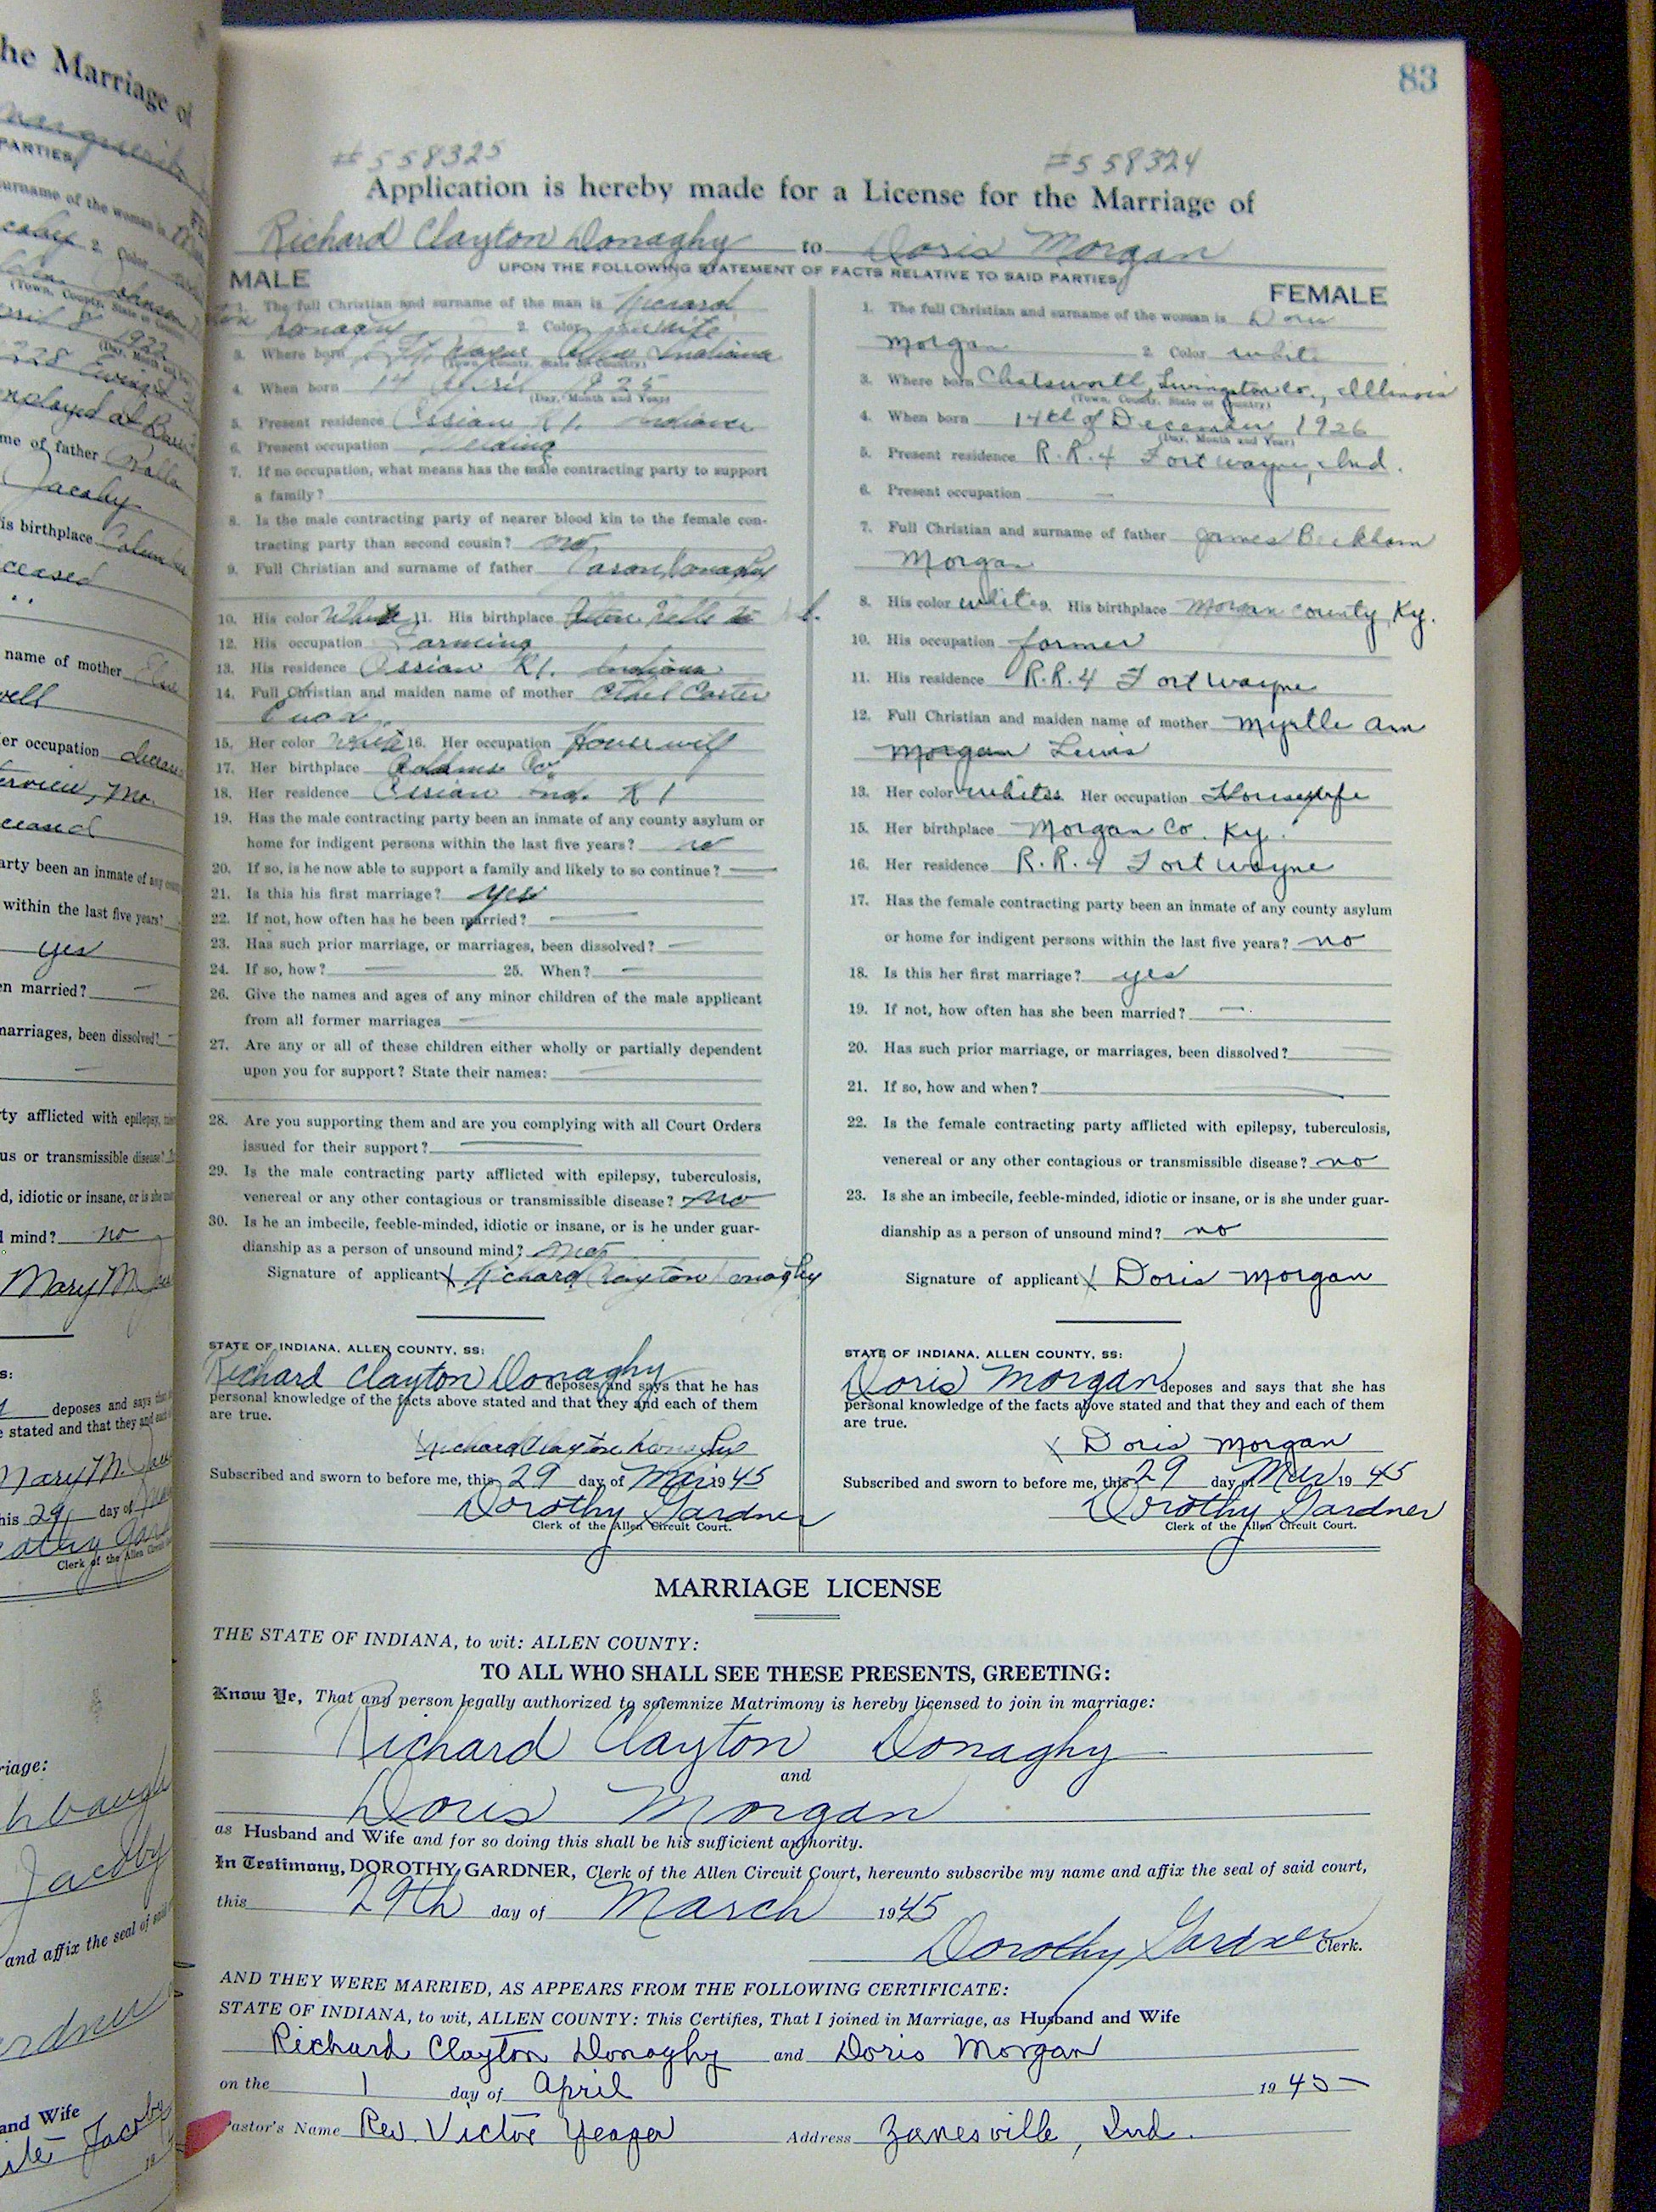 83
#558325 #558324
Application is hereby made for a License for the Marriage of
Richard Clayton Donaghy to Doris Morgan
UPON THE FOLLOWING STATEMENT OF FACTS RELATIVE TO SAID PARTIES
MALE
1. The full Christian and surname of the man is Richard
Donaghy 2. Color white
3. Where born Ft. Wayne Allen Indiana
(Town, County, State or Country)
4. When born 14 April 1925
(Day, Month and Year)
5. Present residence Ossian R1. Indiana
6. Present occupation Welding
7. If no occupation, what means has the male contracting party to support
a family?
8. Is the male contracting party of nearer blood kin to the female con-
tracting party than second cousin? no
9. Full Christian and surname of father Donaghy
10. His color White 11. His birthplace
12. His occupation Farming
13. His residence Ossian R1. Indiana
14. Full Christian and maiden name of mother Ethel
15. Her color White 16. Her occupation Housewife
17. Her birthplace Adams Co.
18. Her residence Ossian Ind. R1
19. Has the male contracting party been an inmate of any county asylum or
home for indigent persons within the last five years? no
20. If so, is he now able to support a family and likely to so continue? —
21. Is this his first marriage? yes
22. If not, how often has he been married? —
23. Has such prior marriage, or marriages, been dissolved? —
24. If so, how? — 25. When? —
26. Give the names and ages of any minor children of the male applicant
from all former marriages —
27. Are any or all of these children either wholly or partially dependent
upon you for support? State their names: —
28. Are you supporting them and are you complying with all Court Orders
issued for their support? —
29. Is the male contracting party afflicted with epilepsy, tuberculosis,
venereal or any other contagious or transmissible disease? no
30. Is he an imbecile, feeble-minded, idiotic or insane, or is he under guar-
dianship as a person of unsound mind? no
Signature of applicant X Richard Clayton Donaghy
STATE OF INDIANA, ALLEN COUNTY, SS:
Richard Clayton Donaghy deposes and says that he has
personal knowledge of the facts above stated and that they and each of them
are true.
X Richard Clayton Donaghy
Subscribed and sworn to before me, this 29 day of Mar 1945
Dorothy Gardner
Clerk of the Allen Circuit Court.
FEMALE
1. The full Christian and surname of the woman is Doris
Morgan 2. Color white
3. Where born Chatsworth, Livingston Co., Illinois
(Town, County, State or Country)
4. When born 14th of December, 1926
(Day, Month and Year)
5. Present residence R.R.4 Fort Wayne, Ind.
6. Present occupation —
7. Full Christian and surname of father James Beckham
Morgan
8. His color white 9. His birthplace Morgan County, Ky.
10. His occupation farmer
11. His residence R.R.4 Fort Wayne
12. Full Christian and maiden name of mother Myrtle Ann
Morgan Lewis
13. Her color white Her occupation Housewife
15. Her birthplace Morgan Co. Ky.
16. Her residence R.R.4 Fort Wayne
17. Has the female contracting party been an inmate of any county asylum
or home for indigent persons within the last five years? no
18. Is this her first marriage? yes
19. If not, how often has she been married? —
20. Has such prior marriage, or marriages, been dissolved?
21. If so, how and when?
22. Is the female contracting party afflicted with epilepsy, tuberculosis,
venereal or any other contagious or transmissible disease? no
23. Is she an imbecile, feeble-minded, idiotic or insane, or is she under guar-
dianship as a person of unsound mind? no
Signature of applicant X Doris Morgan
STATE OF INDIANA, ALLEN COUNTY, SS:
Doris Morgan deposes and says that she has
personal knowledge of the facts above stated and that they and each of them
are true.
X Doris Morgan
Subscribed and sworn to before me, this 29 day of Mar 1945
Dorothy Gardner
Clerk of the Allen Circuit Court.
MARRIAGE LICENSE
THE STATE OF INDIANA, to wit: ALLEN COUNTY:
TO ALL WHO SHALL SEE THESE PRESENTS, GREETING:
Know Ye, That any person legally authorized to solemnize Matrimony is hereby licensed to join in marriage:
Richard Clayton Donaghy
and
Doris Morgan
as Husband and Wife and for so doing this shall be his sufficient authority.
In Testimony, DOROTHY GARDNER, Clerk of the Allen Circuit Court, hereunto subscribe my name and affix the seal of said court,
this 29th day of March 1945
Dorothy Gardner Clerk.
AND THEY WERE MARRIED, AS APPEARS FROM THE FOLLOWING CERTIFICATE:
STATE OF INDIANA, to wit, ALLEN COUNTY: This Certifies, That I joined in Marriage, as Husband and Wife
Richard Clayton Donaghy and Doris Morgan
on the 1 day of April 1945
Pastor's Name Rev. Victor Yeager Address Zanesville, Ind.